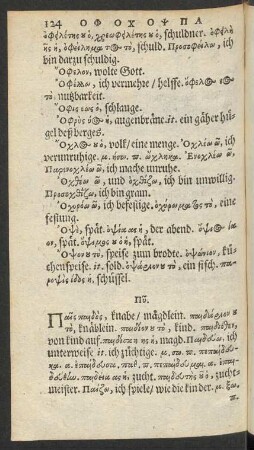 124 ΟΦ ΟΧ ΟΨ ΠΑ
ὀφειλέτης ου ὁ, χρεωφειλέτης ου ὁ, schuldner.
ης ἡ, schuld. ich
bin darzu schuldig.
Ὄφελον, wolte Gott.
Ὀφέλλω, ich vermehre / helffe. ὄφελος ε@
τὸ nutzbarkeit.
Ὄφις εως ὁ, schlange.
Ὀφρὺς ύ@ ἡ, augenbräne. it. ein gäher hü-
gel deß berges.
Ὄχλ@ ου ὁ, volk / eine menge. Ὀχλέω ῶ, ich
verunruhige. Ἐνοχλέω ῶ,
Παρενοχλέω ῶ, ich mache unruhe.
Ὀχθέω ῶ, und ὀχθίζω, ich bin unwillig.
Προσοχθίζω, ich bin gram.
Ὀχυρόω ῶ, ich befestige. ὀχύρωμα τ@ τὸ, eine
festung.
Ὀψὲ, spät. ὀψία ας ἡ, der abend.
ον, spät. spät.
Ὄψον ου τὸ, speise zum brodte. kü-
chenspeise. it. sold. ὀψάριον ου τὸ, ein fisch. πα-
ροψὶς ίδ@ ἡ, schüssel.
Πῦ.
Παῖς παιδὸς, knabe / mägdlein. παιδάριον ου
τὸ, knäblein. παιδίον ου τὸ, kind. παιδιόθεν,
von kind auf. παιδίσκη ης ἡ, magd. Παιδεύω, ich
unterweise it. ich züchtige.
παιδεία ας ἡ, zucht. παιδευτὴς οῦ ὁ, zucht-
meister. Παίζω, ich spiele / wie die kinder.